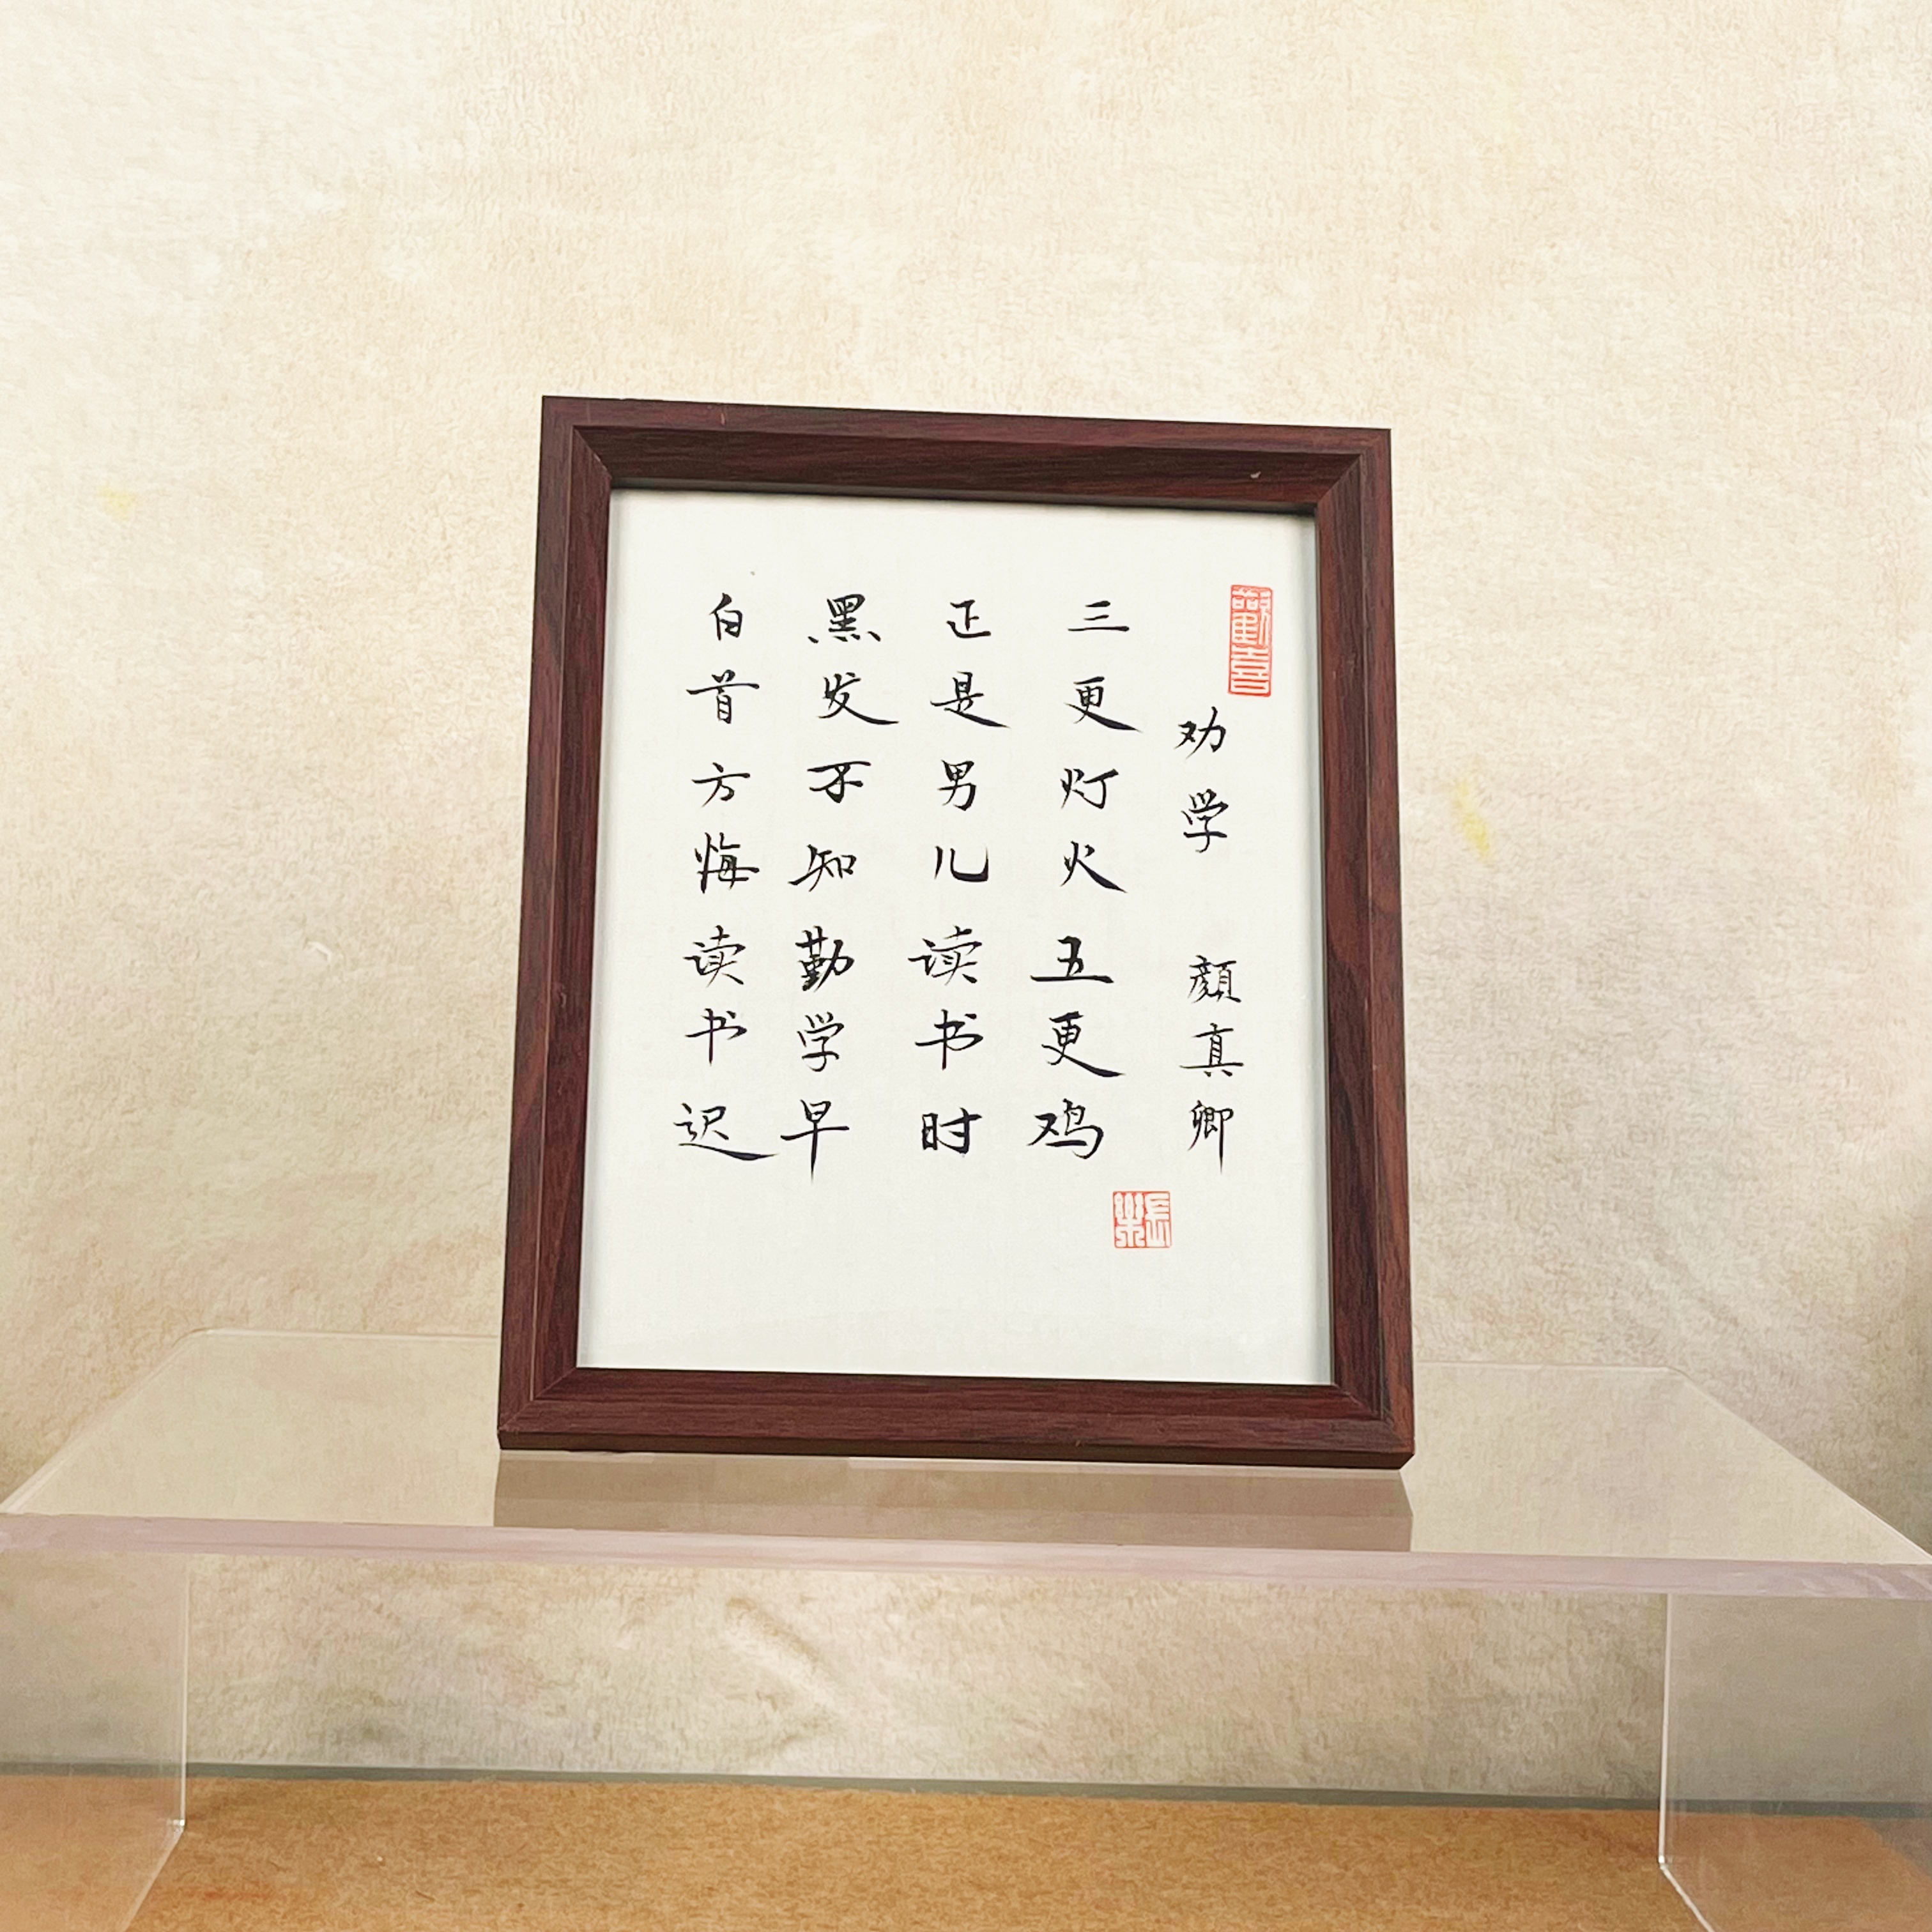 歡喜
劝学 顔真卿
三更灯火五更鸡
正是男儿读书时
黑发不知勤学早
白首方悔读书迟
長樂